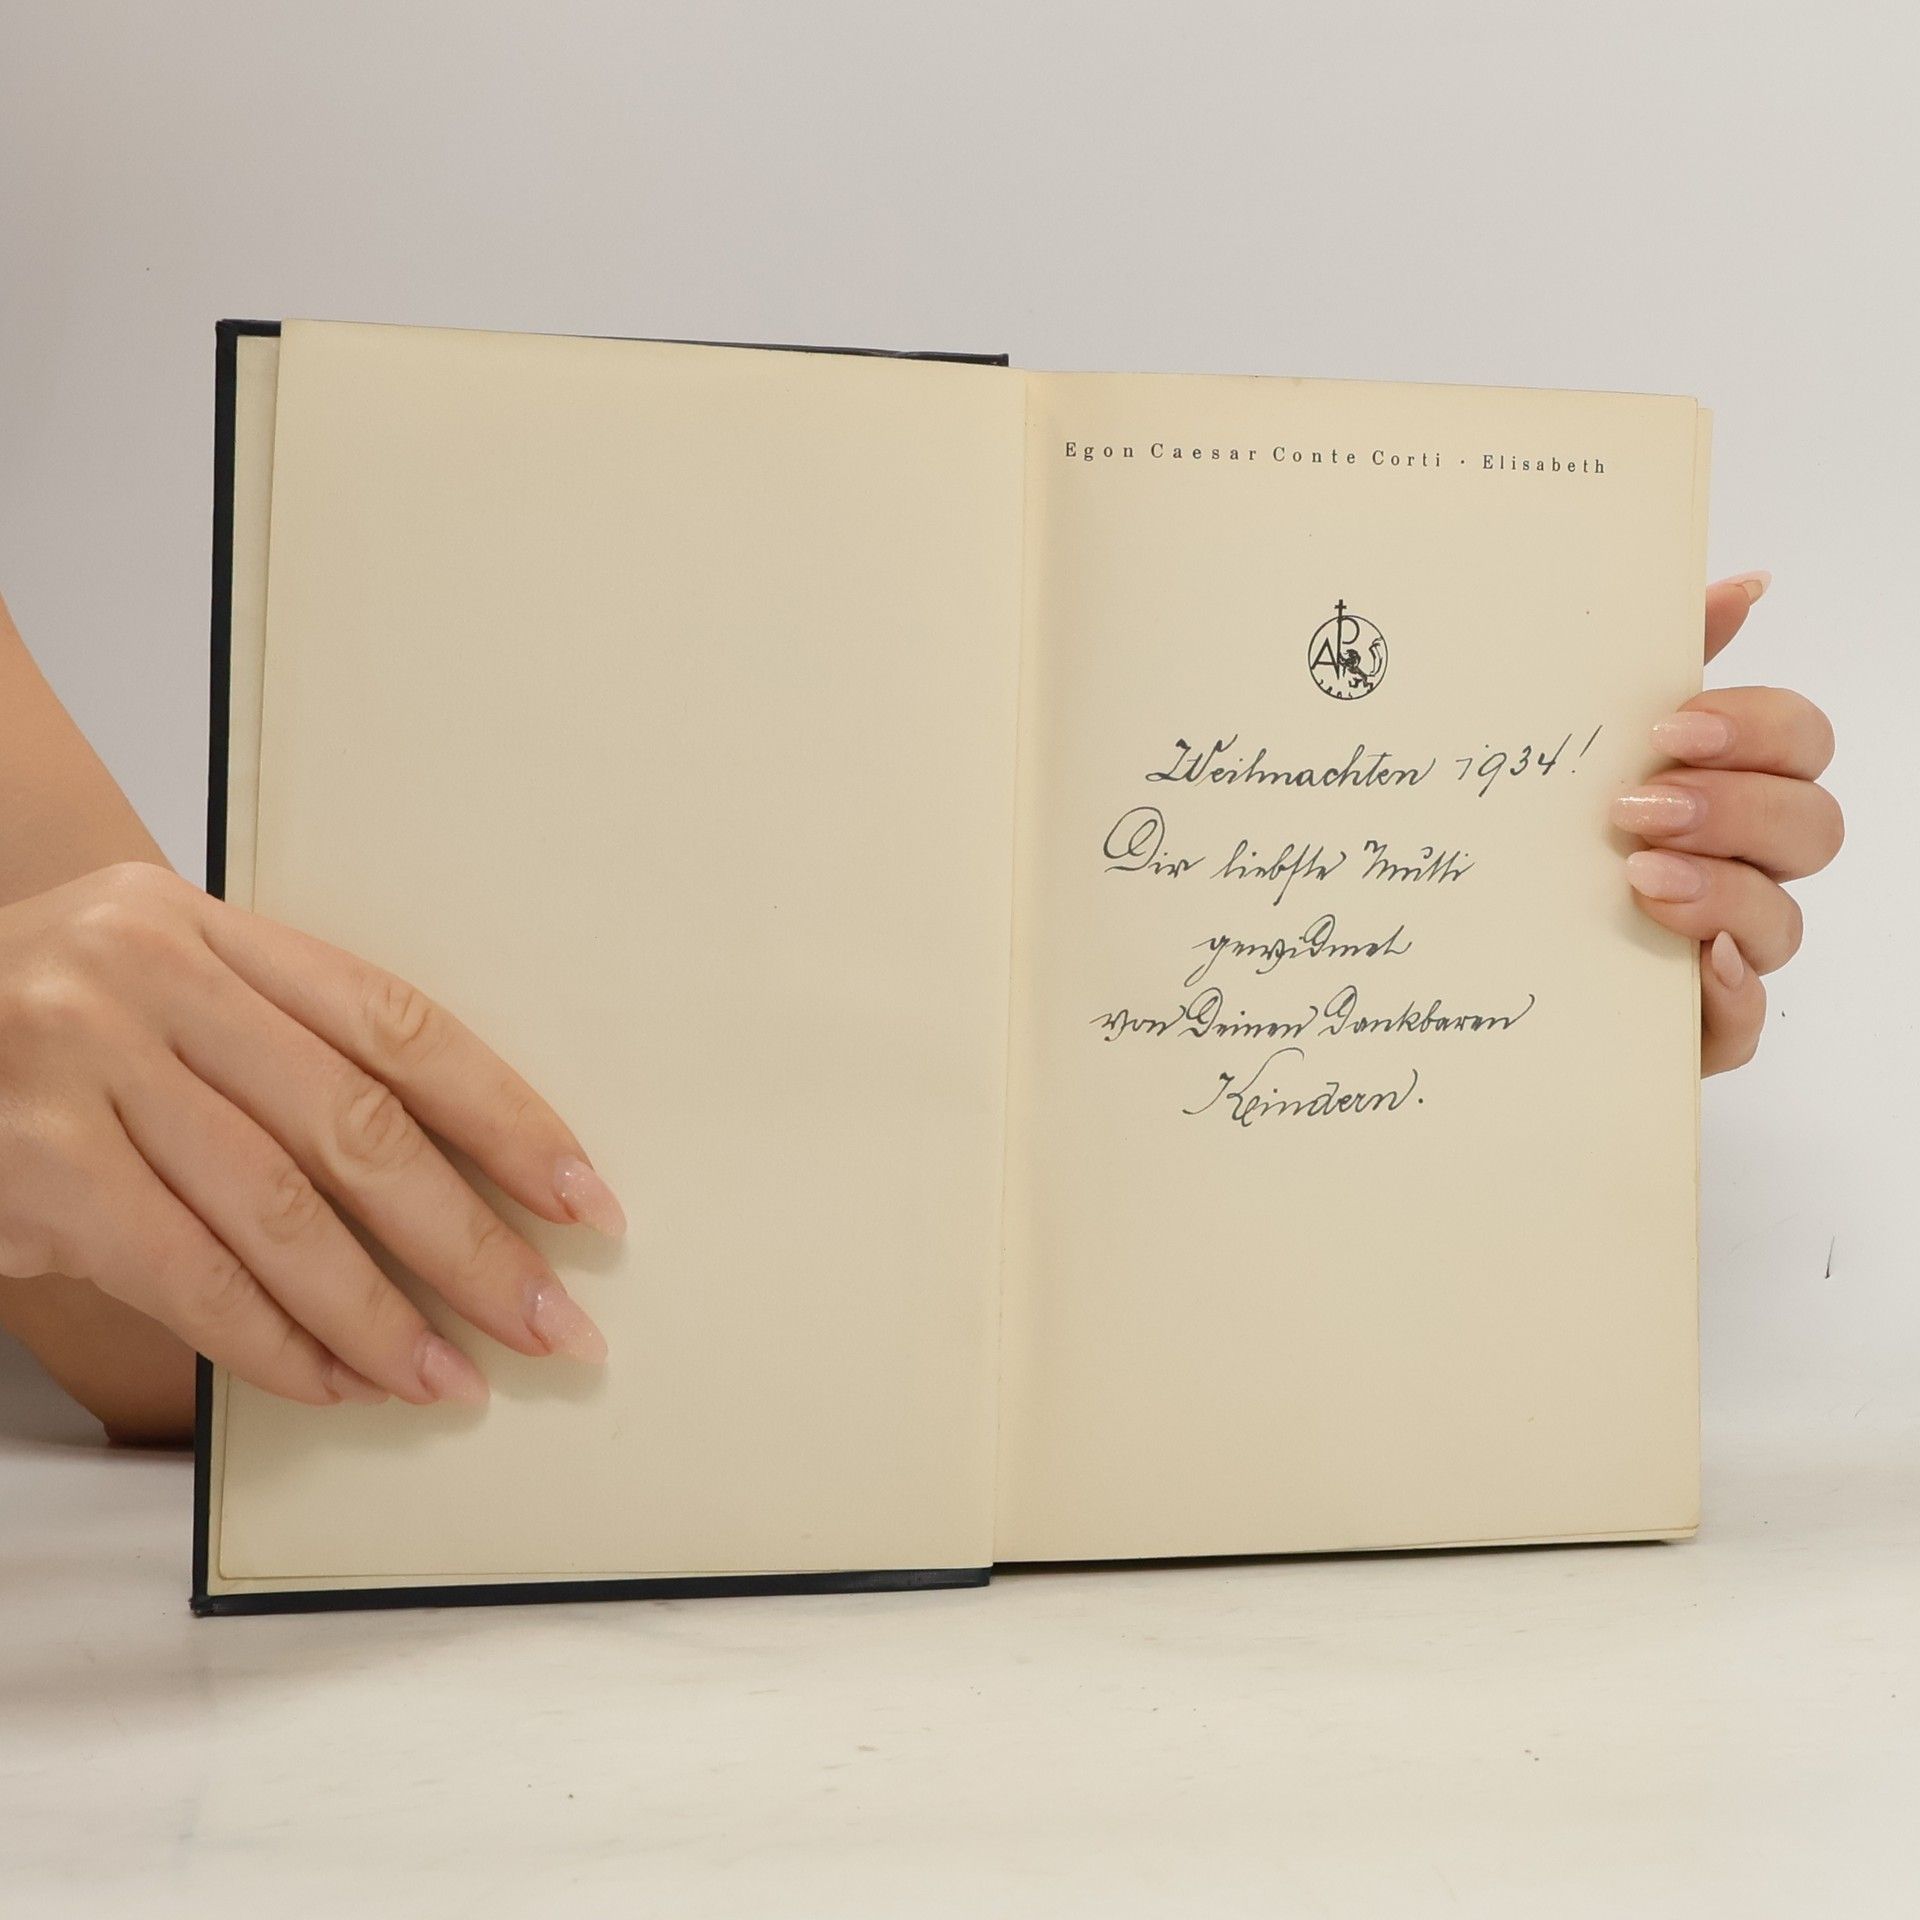 Egon Caesar Conte Corti · Elisabeth
AP
Weihnachten 1934!
Dir liebste Mutti
gewidmet
von Deinen dankbaren
Kindern.